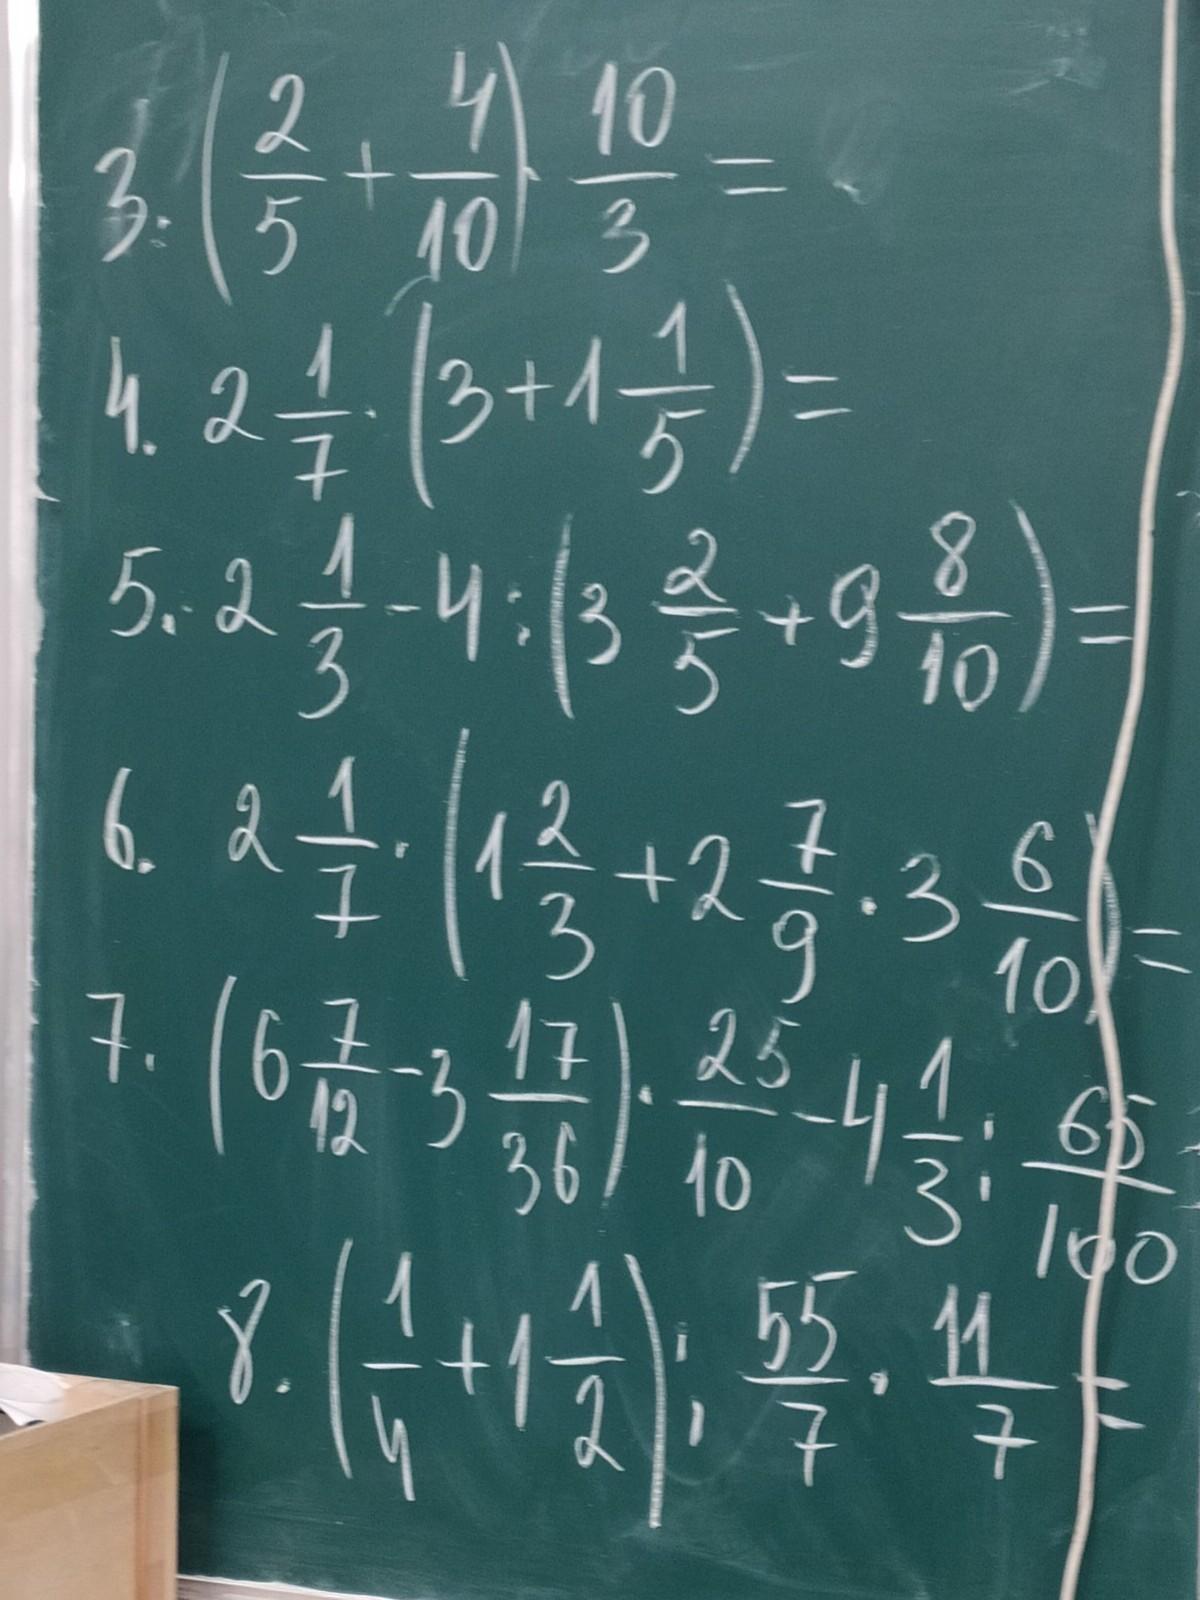 3. (2/5 + 4/10) · 10/3 =
4. 2 1/7 · (3 + 1 1/5) =
5. 2 1/3 - 4 : (3 2/5 + 9 8/10) =
6. 2 1/7 · (1 2/3 + 2 7/9 · 3 6/10) =
7. (6 7/12 - 3 17/36) · 25/10 - 4 1/3 : 65/100
8. (1/4 + 1 1/2) : 55/7 · 11/7 =